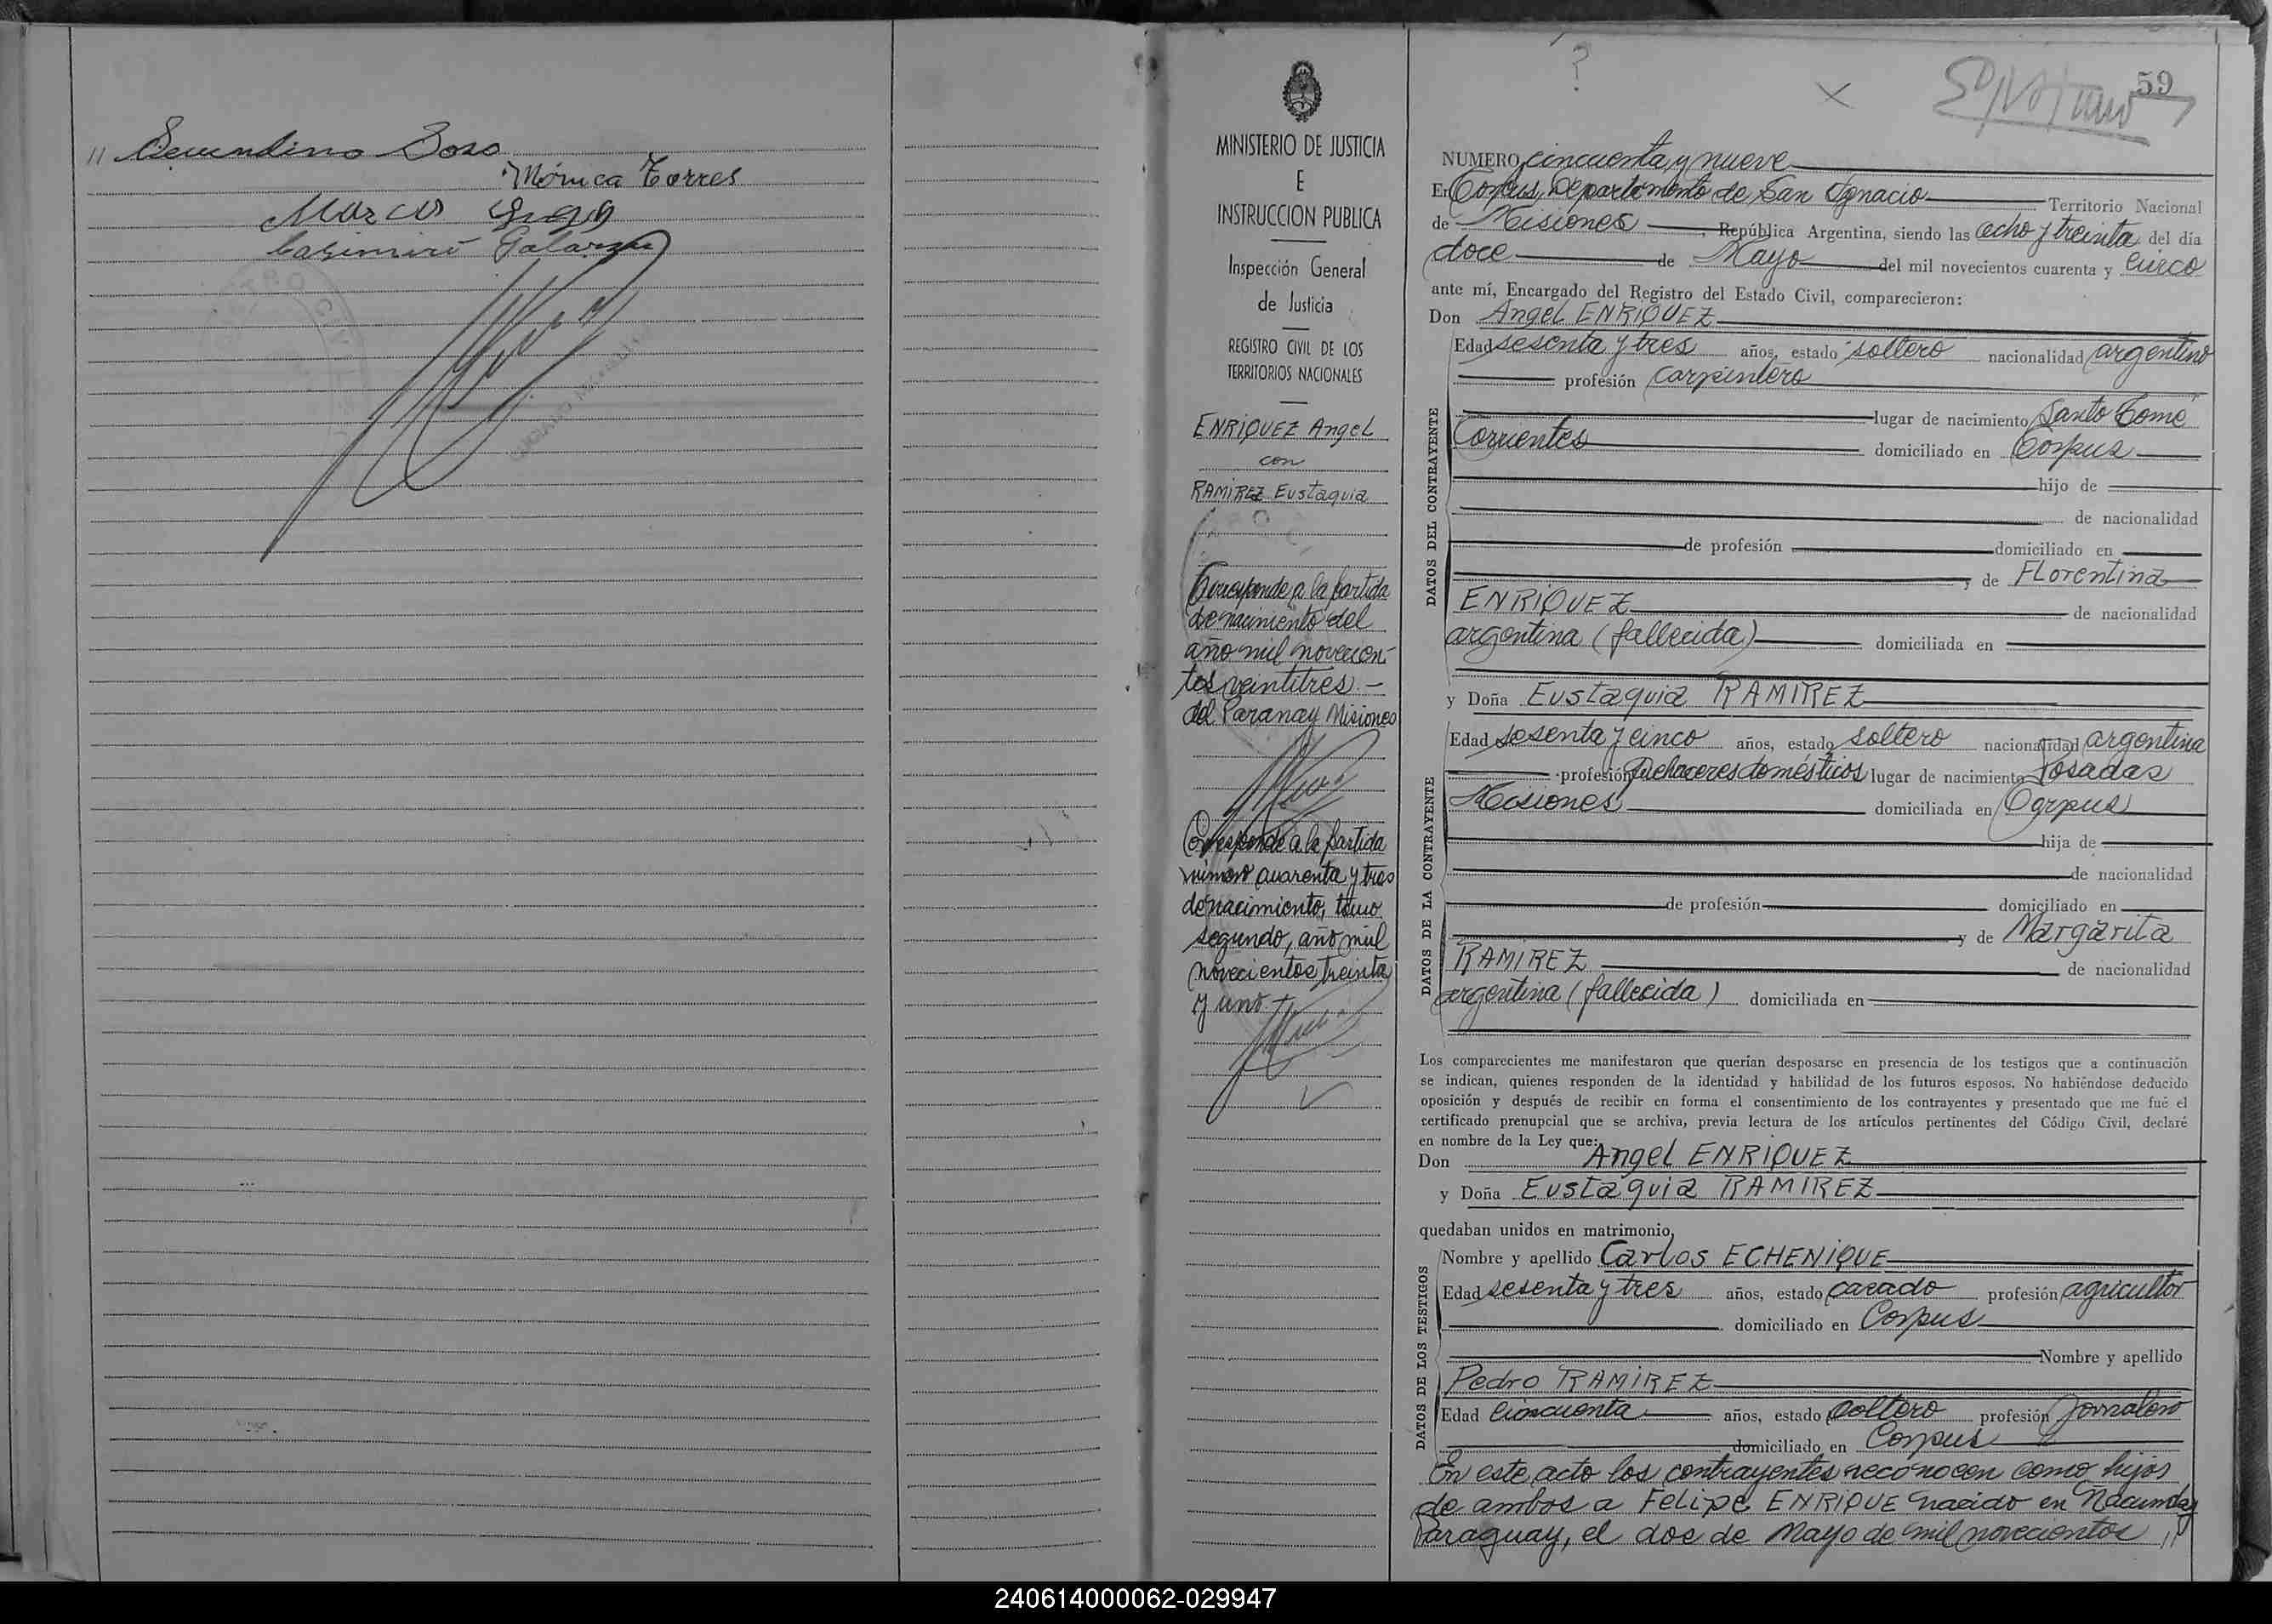 Secundino Soso
Mónica Torres
Marcos
Casimiro Galarza
MINISTERIO DE JUSTICIA
E
INSTRUCCION PUBLICA
Inspección General
de Justicia
REGISTRO CIVIL DE LOS
TERRITORIOS NACIONALES
ENRIQUEZ Angel
con
RAMIREZ Eustaquia
Corresponde a la partida
de nacimiento del
año mil novecien-
tos veintitres.-
del Paranay Misiones
Corresponde a la partida
número cuarenta y tres
de nacimiento, tomo
segundo, año mil
novecientos treinta
y uno
?
59
NUMERO cincuenta y nueve
En Corpus, Departamento de San Ignacio Territorio Nacional
de Misiones, República Argentina, siendo las ocho y treinta del día
doce de Mayo del mil novecientos cuarenta y cinco
ante mí, Encargado del Registro del Estado Civil, comparecieron:
Don Angel ENRIQUEZ
DATOS DEL CONTRAYENTE
Edad sesenta y tres años, estado soltero nacionalidad argentino
profesión carpintero
lugar de nacimiento Santo Tomé
Corrientes domiciliado en Corpus
hijo de
de nacionalidad
de profesión domiciliado en
, de FLorentina
ENRIQUEZ de nacionalidad
argentina (fallecida) domiciliada en
y Doña Eustaquia RAMIREZ
DATOS DE LA CONTRAYENTE
Edad sesenta y cinco años, estado soltero nacionalidad argentina
profesión Quehaceres domésticos lugar de nacimiento Posadas
Misiones domiciliada en Corpus
hija de
de nacionalidad
de profesión domiciliado en
y de Margarita
RAMIREZ de nacionalidad
argentina (fallecida) domiciliada en
Los comparecientes me manifestaron que querían desposarse en presencia de los testigos que a continuación
se indican, quienes responden de la identidad y habilidad de los futuros esposos. No habiéndose deducido
oposición y después de recibir en forma el consentimiento de los contrayentes y presentado que me fué el
certificado prenupcial que se archiva, previa lectura de los artículos pertinentes del Código Civil, declaré
en nombre de la Ley que:
Don Angel ENRIQUEZ
y Doña Eustaquia RAMIREZ
quedaban unidos en matrimonio,
DATOS DE LOS TESTIGOS
Nombre y apellido Carlos ECHENIQUE
Edad sesenta y tres años, estado casado profesión agricultor
domiciliado en Corpus
Nombre y apellido
Pedro RAMIREZ
Edad cincuenta años, estado soltero profesión Jornalero
domiciliado en Corpus
En este acto los contrayentes reconocen como hijos
de ambos a Felipe ENRIQUE nacido en Nacunday
Paraguay, el dos de Mayo de mil novecientos //
240614000062-029947